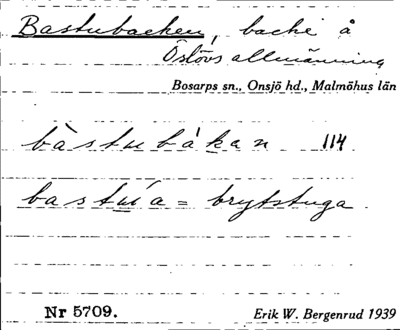 Bastubacken, backe å
Öslövs allmänning
Bosarps sn., Onsjö hd., Malmöhus län
bàstubákan 114
bastúa = brytstuga
Nr 5709. Erik W. Bergenrud 1939